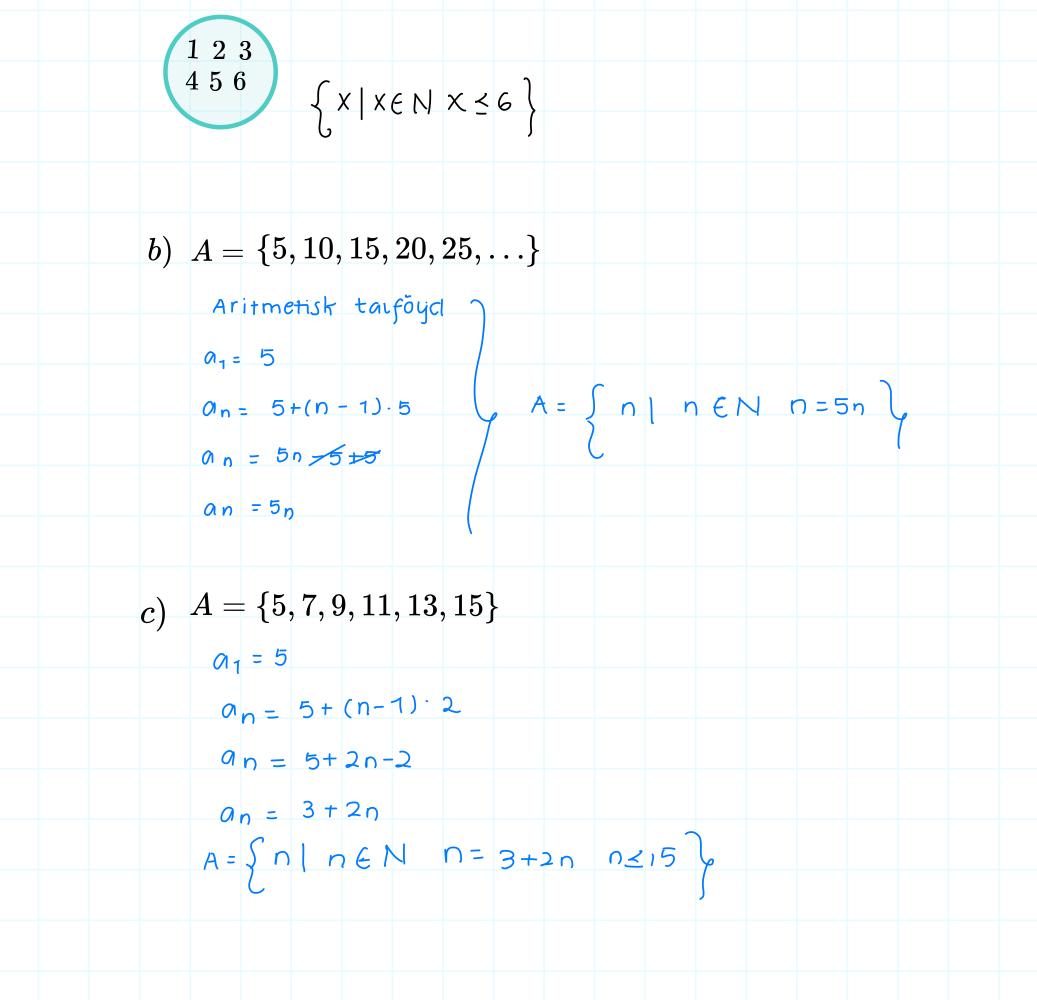 1 2 3
4 5 6
{x | x ∈ N x ≤ 6}
b) A = {5, 10, 15, 20, 25, ...}
Aritmetisk talföljd
a₁ = 5
aₙ = 5+(n - 1)·5
aₙ = 5n -5+5
aₙ = 5n
A = { n | n ∈ N n = 5n }
c) A = {5, 7, 9, 11, 13, 15}
a₁ = 5
aₙ = 5+(n-1)·2
aₙ = 5+2n-2
aₙ = 3+2n
A = { n | n ∈ N n = 3+2n n ≤ 15 }